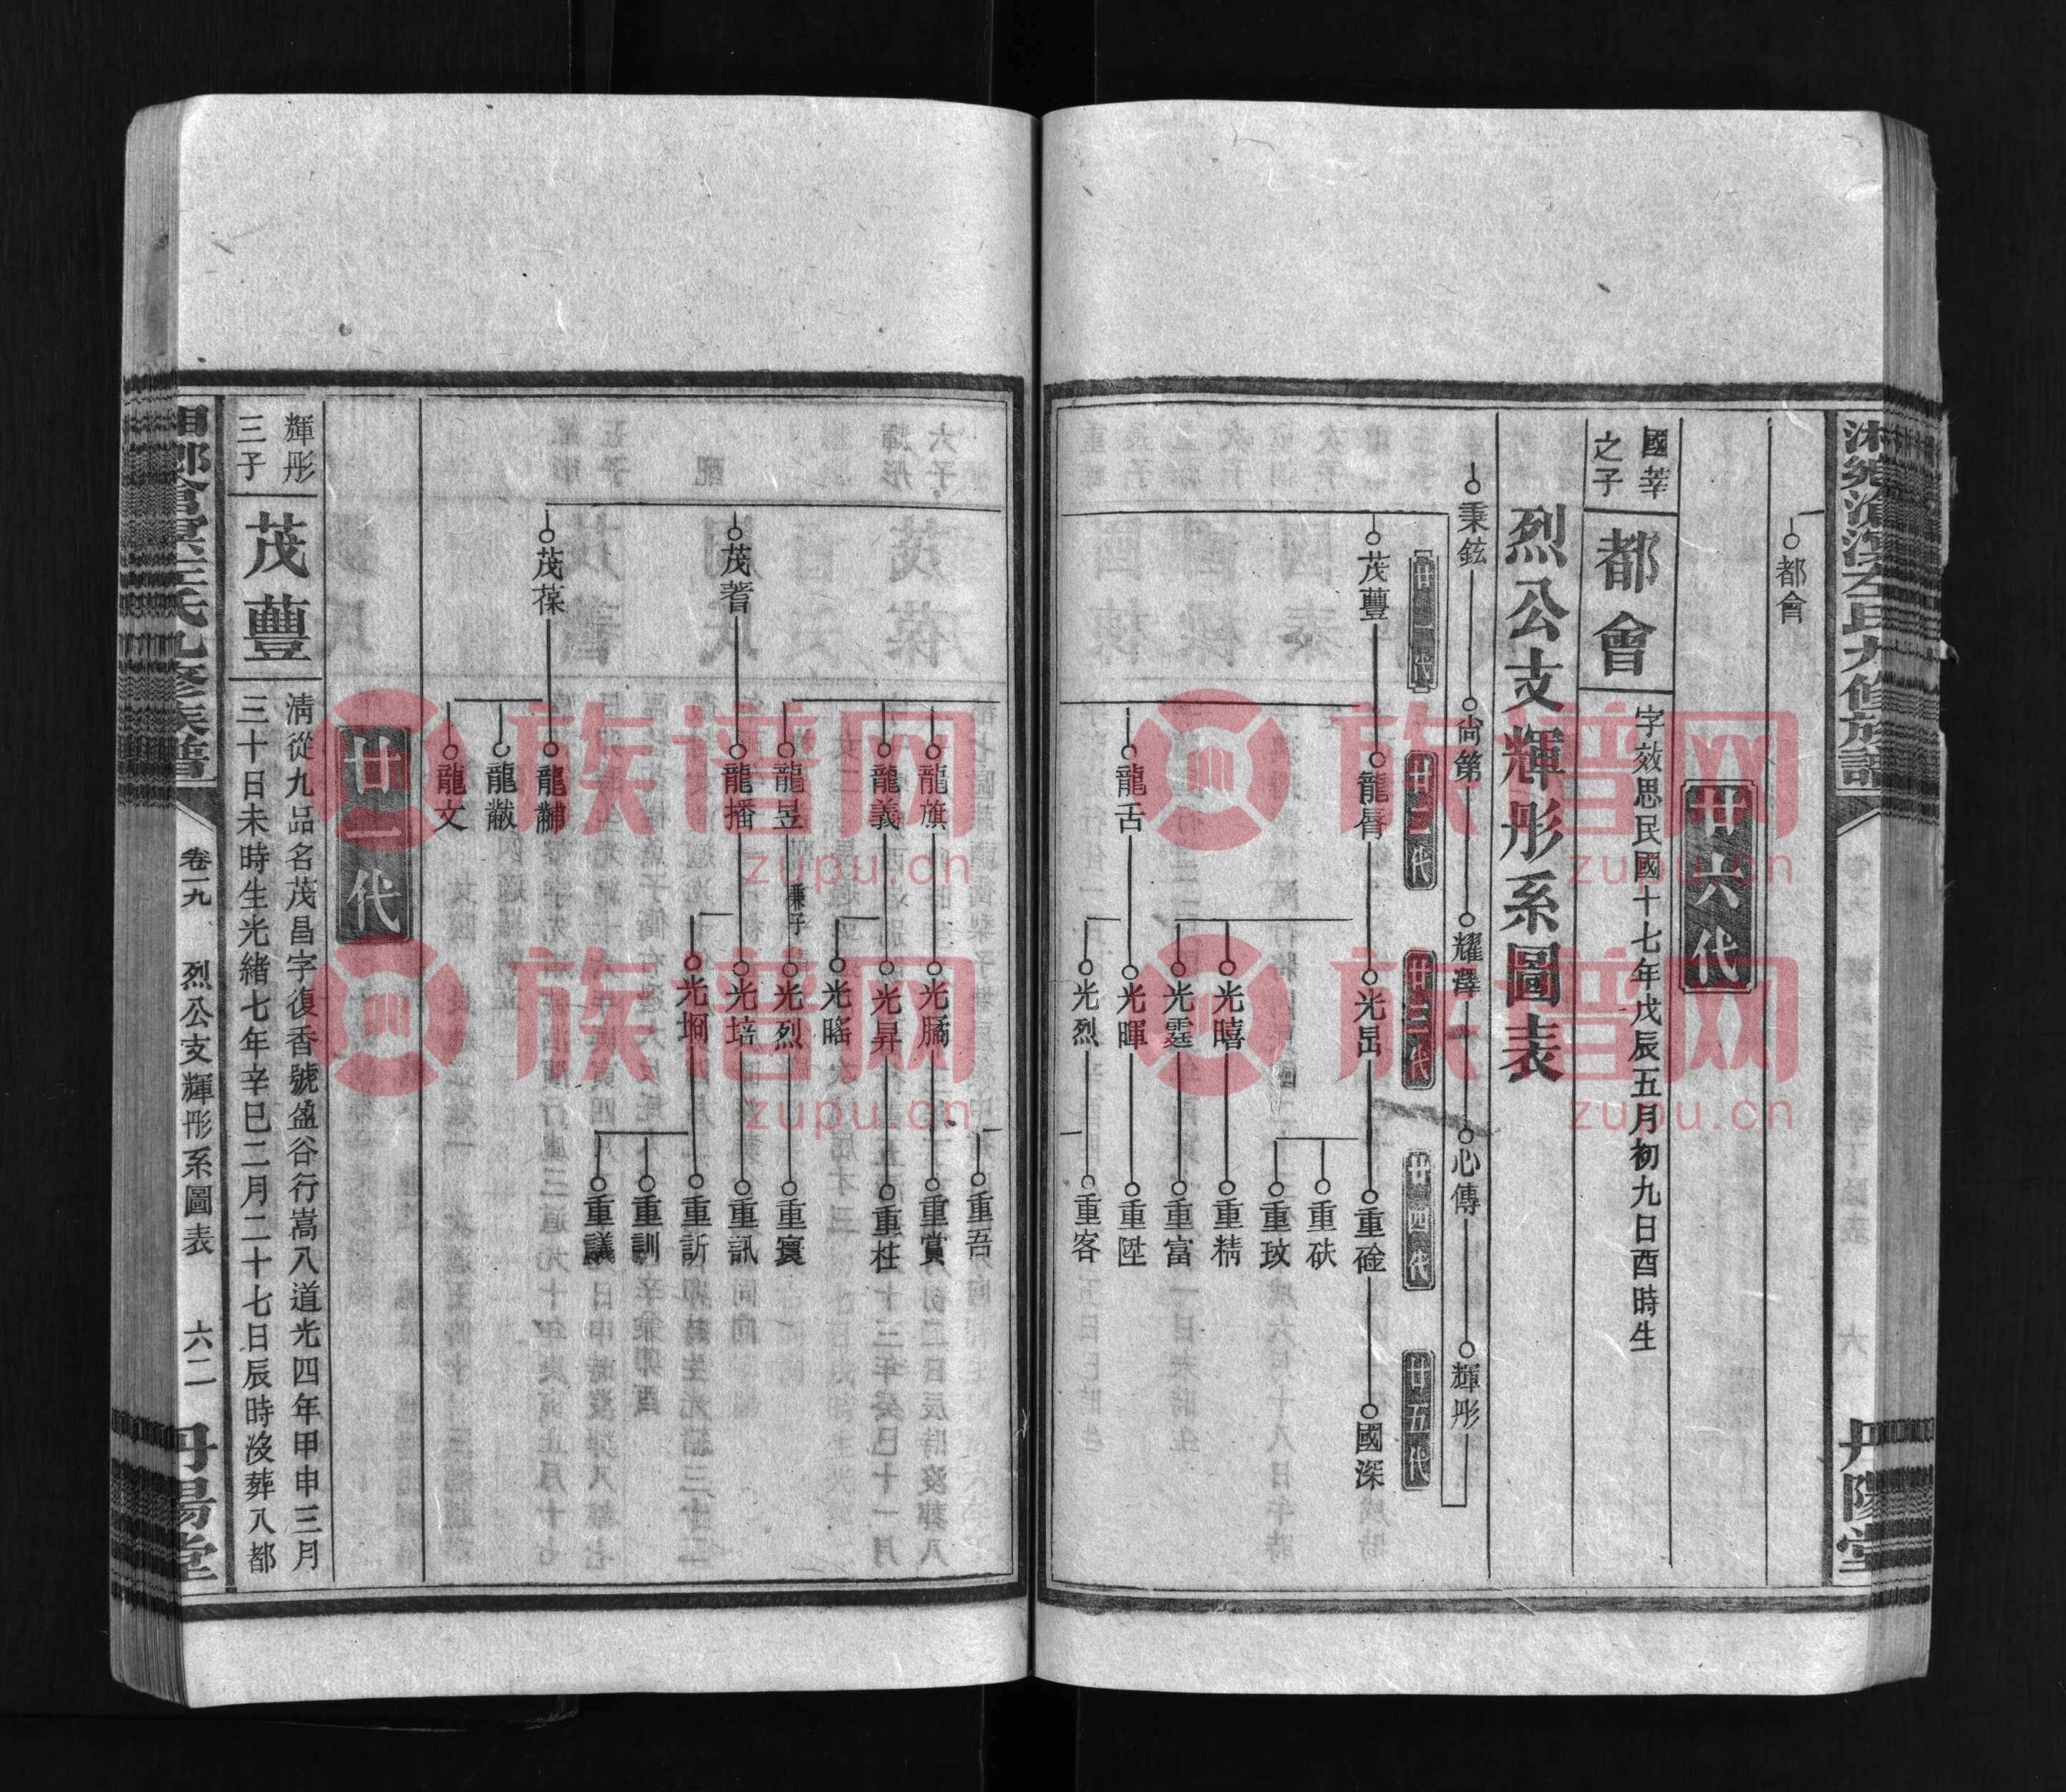 都會
廿六代
國莘
之子
都會
字效思民國十七年戊辰五月初九日酉時生
烈公支輝彤系圖表
秉鉉
尚第
耀澤
心傳
輝彤
廿二代
廿三代
廿四代
廿五代
茂豐
龍脣
光昂
重硂
國深
重砆
重玟
光曦
重精
光霆
重富
龍舌
光暉
重陞
光烈
重客
重吾
龍旗
光膈
重賞
龍義
光昇
重柱
光暚
龍昱
兼子
光烈
重寰
茂蓍
龍播
光培
重訊
光坰
重訢
重訓
重議
茂葆
龍黼
龍黻
龍文
廿一代
輝彤
三子
茂豐
清從九品名茂昌字復香號盈谷行嵩八道光四年甲申三月
三十日未時生光緒七年辛巳二月二十七日辰時沒葬八都
卷一九
烈公支輝彤系圖表
六二
丹陽堂
丹陽堂
族谱网
zupu.cn
族谱网
zupu.cn
族谱网
zupu.cn
族谱网
zupu.cn